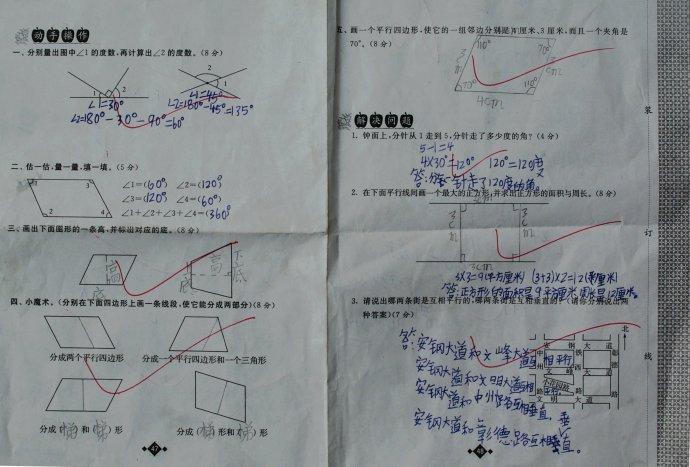 动手操作
一、分别量出图中∠1的度数,再计算出∠2的度数。(8分)
1
2
2
1
∠1=30°
∠2=180°-30°-90°=60°
∠1=45°
∠2=180°-45°=135°
二、估一估,量一量,填一填。(5分)
1
3
2
4
∠1=(60°) ∠2=(120°)
∠3=(120°) ∠4=(60°)
∠1+∠2+∠3+∠4=(360°)
三、画出下面图形的一条高,并标出对应的底。(8分)
高
底
高
下底
底
四、小魔术。(分别在下面四边形上画一条线段,使它能分成两部分)(8分)
分成两个平行四边形
分成一个平行四边形和一个三角形
分成(梯)和(梯)形
分成(梯)形和(梯)形
47
五、画一个平行四边形,使它的一组邻边分别是4厘米、3厘米,而且一个夹角是
70°。(8分)
110°
70°
3cm
70°
110°
4cm
解决问题
1. 钟面上,分针从1走到5,分针走了多少度的角?(4分)
5-1=4
4×30°=120° 120°=120度
答:分针走了120度的角。
2. 在下面平行线间画一个最大的正方形,并求出正方形的面积与周长。(8分)
3cm
3cm
3cm
3×3=9(平方厘米) (3+3)×2=12(厘米)
答:正方形的面积是9平方厘米,周长是12厘米。
3. 请说出哪两条街是互相平行的,哪两条街是互相垂直的?(请你分别说出两
种答案)(7分)
北
安钢大道
中州路
铁西路
彰德路
文峰大道
文明大道
答:安钢大道和文峰大道互相平行。
安钢大道和文明大道互相平行。
安钢大道和中州路互相垂直。
安钢大道和彰德路互相垂直。
48
装
订
线